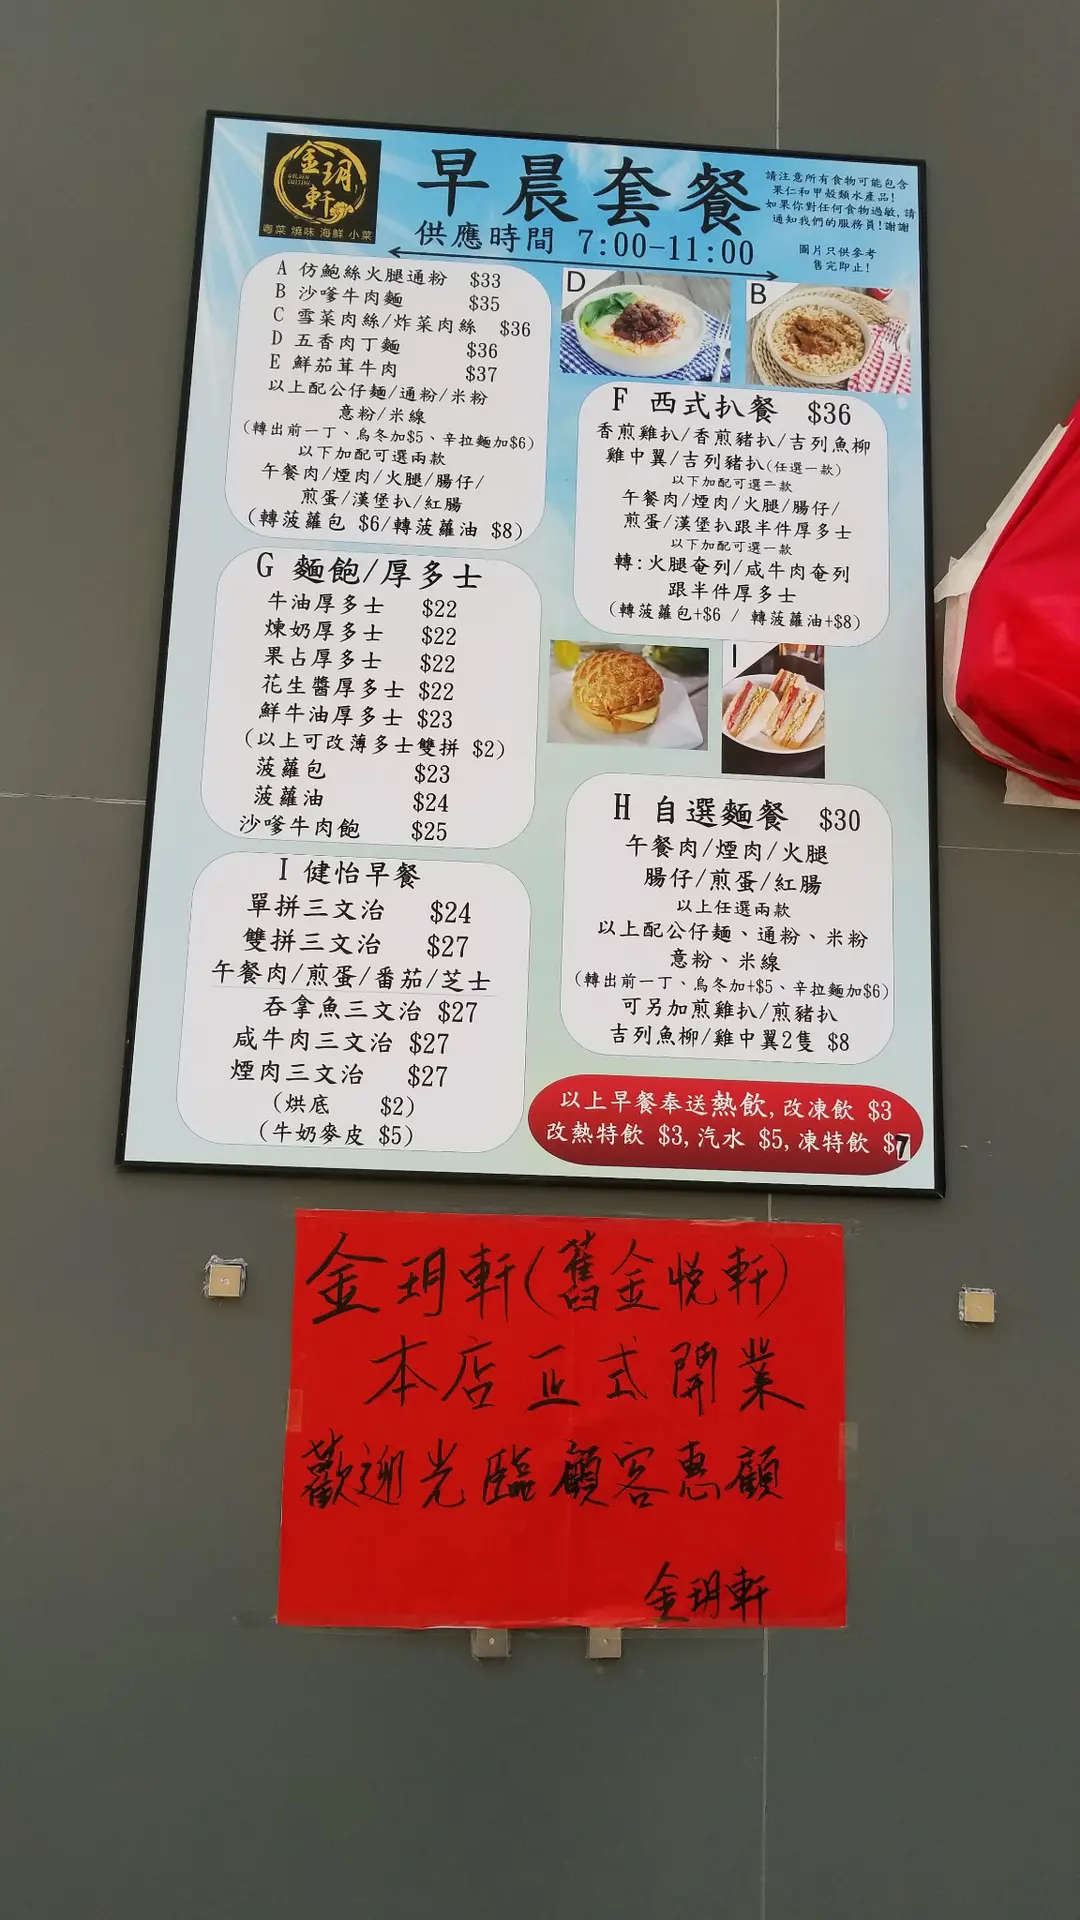 金玥軒
GOLDEN
CUISINE
粵菜 燒味 海鮮 小菜
早晨套餐
供應時間 7:00-11:00
請注意所有食物可能包含
果仁和甲殼類水產品!
如果你對任何食物過敏,請
通知我們的服務員!謝謝
圖片只供參考
售完即止!
A 仿鮑絲火腿通粉 $33
B 沙嗲牛肉麵 $35
C 雪菜肉絲/炸菜肉絲 $36
D 五香肉丁麵 $36
E 鮮茄茸牛肉 $37
以上配公仔麵/通粉/米粉
意粉/米線
(轉出前一丁、烏冬加$5、辛拉麵加$6)
以下加配可選兩款
午餐肉/煙肉/火腿/腸仔/
煎蛋/漢堡扒/紅腸
(轉菠蘿包 $6/轉菠蘿油 $8)
D
B
F 西式扒餐 $36
香煎雞扒/香煎豬扒/吉列魚柳
雞中翼/吉列豬扒(任選一款)
以下加配可選二款
午餐肉/煙肉/火腿/腸仔/
煎蛋/漢堡扒跟半件厚多士
以下加配可選一款
轉:火腿奄列/咸牛肉奄列
跟半件厚多士
(轉菠蘿包+$6 / 轉菠蘿油+$8)
G 麵飽/厚多士
牛油厚多士 $22
煉奶厚多士 $22
果占厚多士 $22
花生醬厚多士 $22
鮮牛油厚多士 $23
(以上可改薄多士雙拼 $2)
菠蘿包 $23
菠蘿油 $24
沙嗲牛肉飽 $25
I
H 自選麵餐 $30
午餐肉/煙肉/火腿
腸仔/煎蛋/紅腸
以上任選兩款
以上配公仔麵、通粉、米粉
意粉、米線
(轉出前一丁、烏冬加+$5、辛拉麵加$6)
可另加煎雞扒/煎豬扒
吉列魚柳/雞中翼2隻 $8
I 健怡早餐
單拼三文治 $24
雙拼三文治 $27
午餐肉/煎蛋/番茄/芝士
吞拿魚三文治 $27
咸牛肉三文治 $27
煙肉三文治 $27
(烘底 $2)
(牛奶麥皮 $5)
以上早餐奉送熱飲,改凍飲 $3
改熱特飲 $3,汽水 $5,凍特飲 $7
金玥軒(舊金悅軒)
本店正式開業
歡迎光臨顧客惠顧
金玥軒